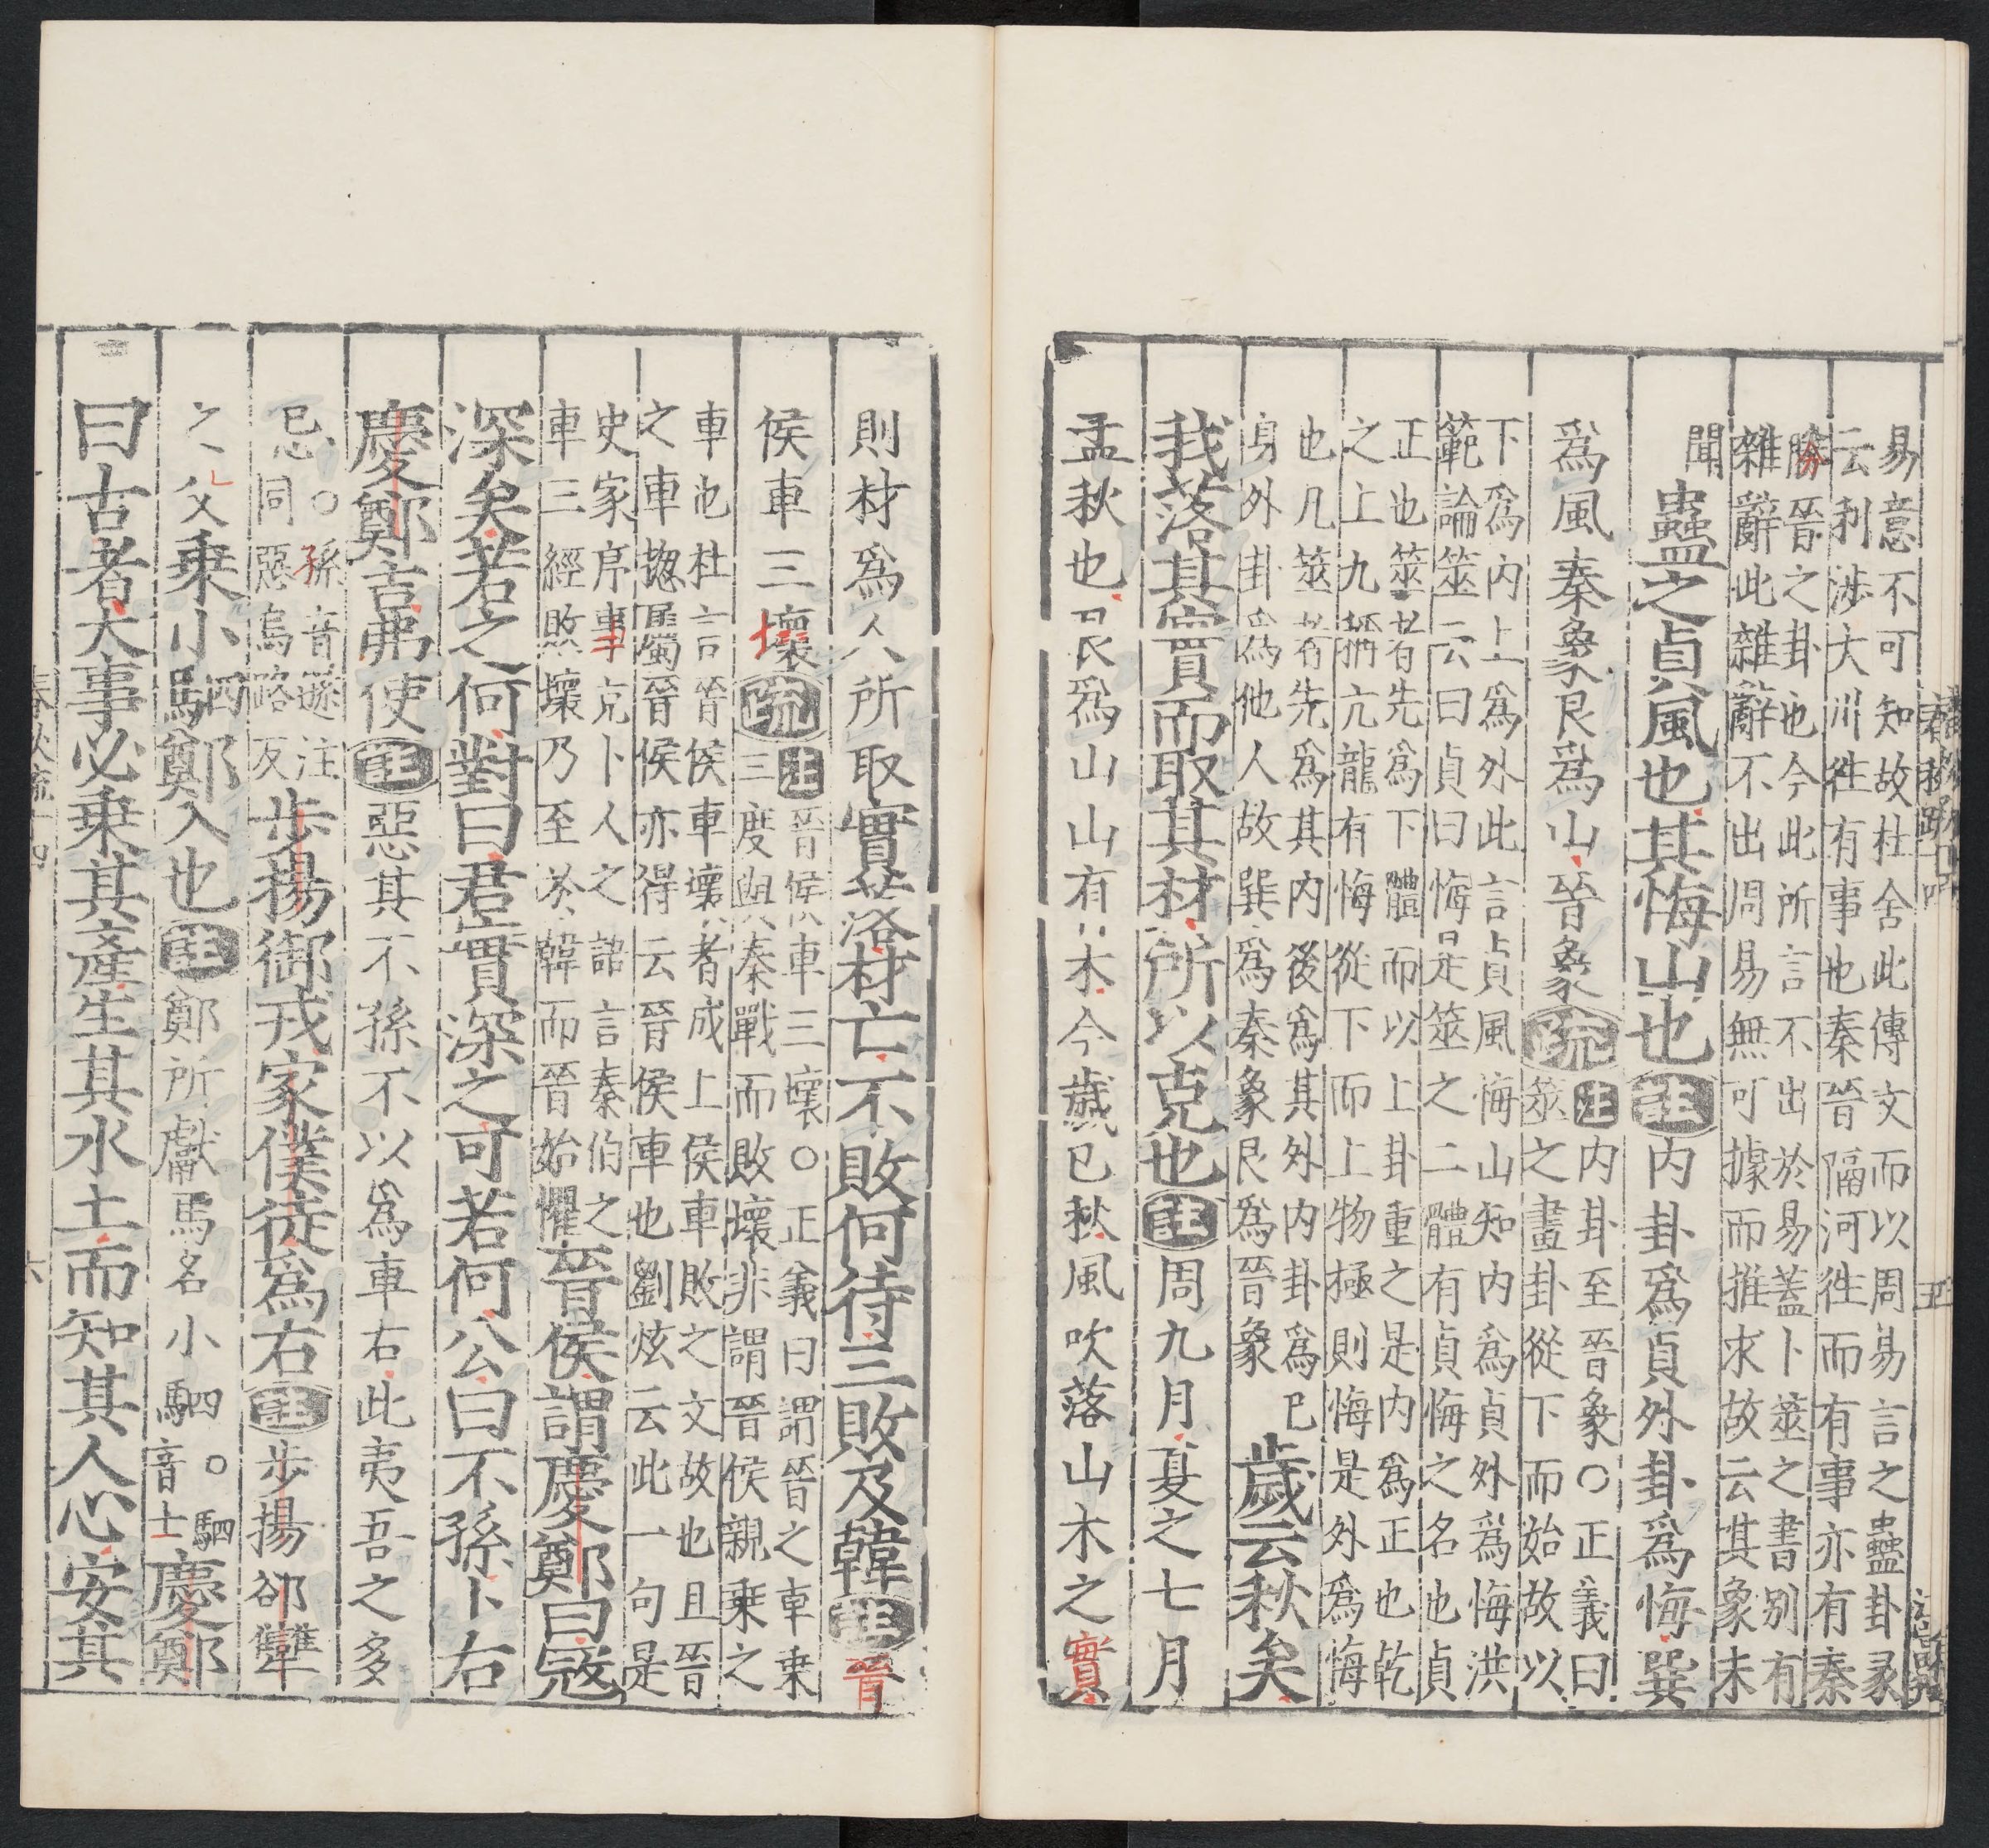 易意不可知故杜舍此傳文而以周易言之蠱卦彖
云利涉大川徃有事也秦晉隔河徃而有事亦有秦
勝晉之卦也今此所言不出於易蓋卜筮之書别有
雜辭此雜辭不出周易無可據而推求故云其象未
聞
蠱之貞風也其悔山也注内卦爲貞外卦爲悔巽
爲風秦象艮爲山晉象疏
注内卦至晉象○正義曰
筮之畫卦從下而始故以
下爲内上爲外此言貞風悔山知内爲貞外爲悔洪
範論筮云曰貞曰悔是筮之二體有貞悔之名也貞
正也筮者先爲下體而以上卦重之是内爲正也乾
之上九稱亢龍有悔從下而上物極則悔是外爲悔
也凡筮者先爲其内後爲其外内卦爲巳
身外卦爲他人故巽爲秦象艮爲晉象
歲云秋矣
我落其實而取其材所以克也注周九月夏之七月
孟秋也艮爲山山有木今歲巳秋風吹落山木之實
則材爲人所取實落材亡不敗何待三敗及韓注晉
侯車三壞疏
注晉侯車三壞○正義曰謂晉之車乗
三度與秦戰而敗壞非謂晉侯親乗之
車也杜言晉侯車壞者成上侯車敗之文故也且晉
之車揔屬晉侯亦得云晉侯車也劉炫云此一句是
史家序事充卜人之語言秦伯之
車三經敗壞乃至於韓而晉始懼
晉侯謂慶鄭曰㓂
深矣若之何對曰君實深之可若何公曰不孫卜右
慶鄭吉弗使注惡其不孫不以爲車右此夷吾之多
忌
○孫音遜注
同惡烏路反
步揚御戎家僕徒爲右注步揚郤犫
之父乗小駟鄭入也注鄭所獻馬名小駟
○駟
音士
慶鄭
曰古者大事必乗其產生其水土而知其人心安其